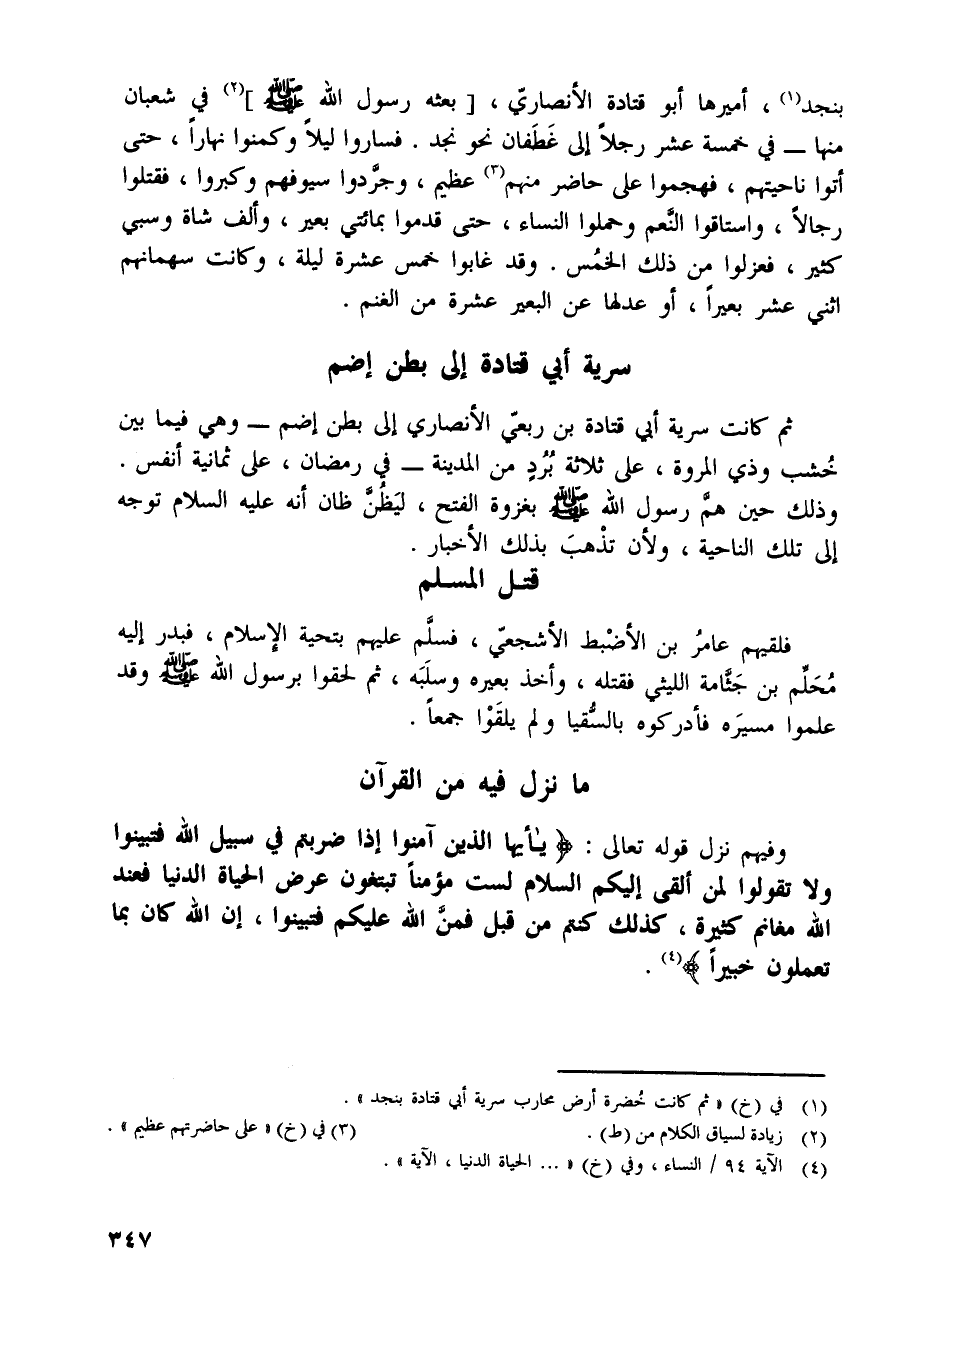 بنجد(١) ، أميرها أبو قتادة الأنصاريّ ، [ بعثه رسول الله ﷺ ](٢) في شعبان
منها — في خمسة عشر رجلاً إلى غَطَفان نحو نجد . فساروا ليلاً وكمنوا نهاراً ، حتى
أتوا ناحيتهم ، فهجموا على حاضر منهم(٣) عظيم ، وجرَّدوا سيوفهم وكبروا ، فقتلوا
رجالاً ، واستاقوا النَّعم وحملوا النساء ، حتى قدموا بمائتي بعير ، وألف شاة وسبي
كثير ، فعزلوا من ذلك الخمُس . وقد غابوا خمس عشرة ليلة ، وكانت سهمانهم
اثني عشر بعيراً ، أو عدلها عن البعير عشرة من الغنم .
سرية أبي قتادة إلى بطن إضم
ثم كانت سرية أبي قتادة بن ربعيّ الأنصاري إلى بطن إضم — وهي فيما بين
خُشب وذي المروة ، على ثلاثة بُرُدٍ من المدينة — في رمضان ، على ثمانية أنفس .
وذلك حين همَّ رسول الله ﷺ بغزوة الفتح ، ليَظُنَّ ظان أنه عليه السلام توجه
إلى تلك الناحية ، ولأن تذْهبَ بذلك الأخبار .
قتل المسلم
فلقيهم عامرُ بن الأضْبط الأشجعيّ ، فسلَّم عليهم بتحية الإسلام ، فبدر إليه
مُحَلِّم بن جَثَّامة الليثي فقتله ، وأخذ بعيره وسلَبَه ، ثم لحقوا برسول الله ﷺ وقد
علموا مسيرَه فأدركوه بالسُّقيا ولم يلقَوْا جمعاً .
ما نزل فيه من القرآن
وفيهم نزل قوله تعالى : ﴿ يٰأيها الذين آمنوا إذا ضربتم في سبيل الله فتبينوا
ولا تقولوا لمن ألقى إليكم السلام لست مؤمناً تبتغون عرض الحياة الدنيا فعند
الله مغانم كثيرة ، كذلك كنتم من قبل فمنَّ الله عليكم فتبينوا ، إن الله كان بما
تعملون خبيراً ﴾(٤) .
(١) في (خ) « ثم كانت خُضرة أرض محارب سرية أبي قتادة بنجد » .
(٢) زيادة لسياق الكلام من (ط) . (٣) في (خ) « على حاضرتهم عظيم » .
(٤) الآية ٩٤ / النساء ، وفي (خ) « ... الحياة الدنيا ، الآية » .
٣٤٧